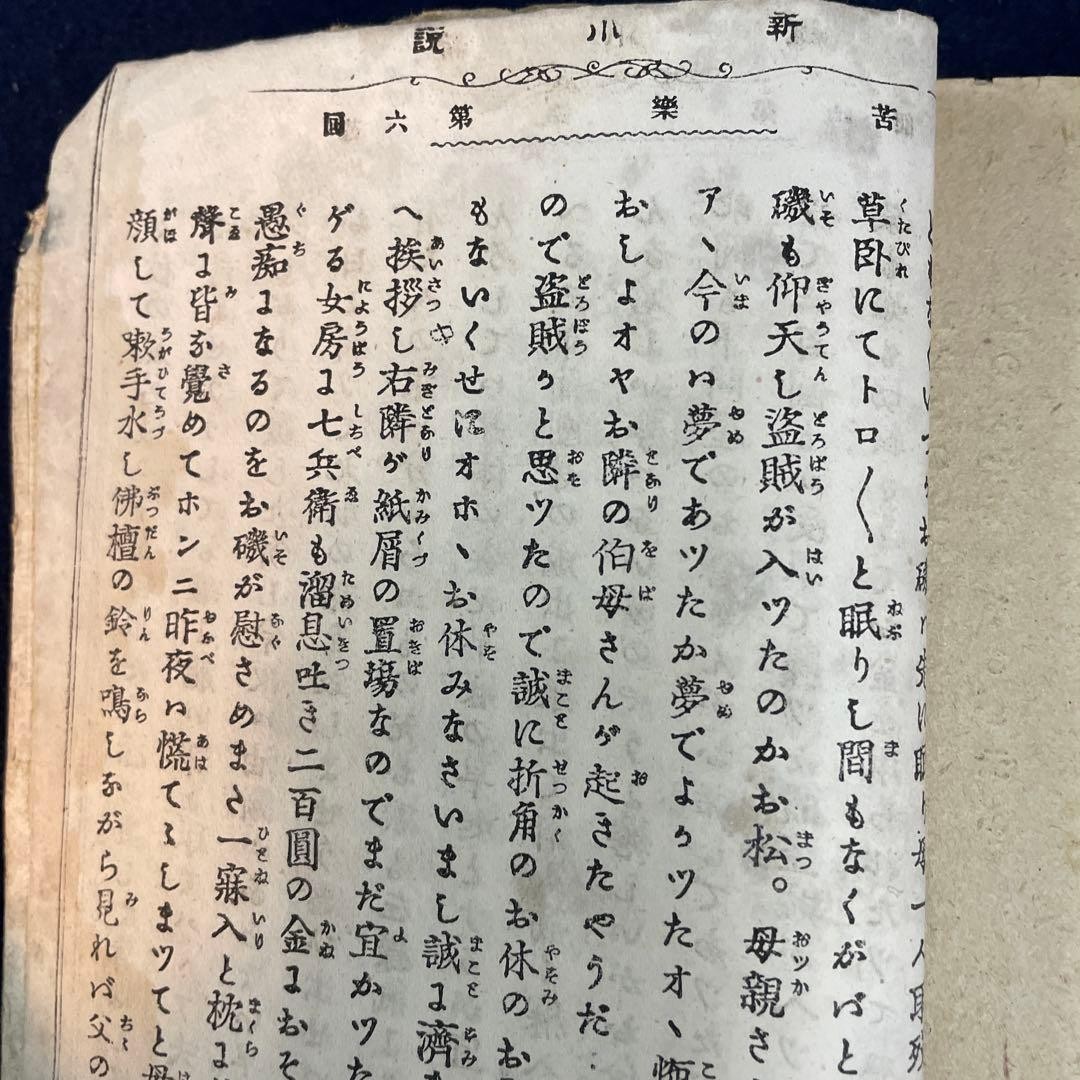 新小説
苦樂 第六回
草臥にてトロ〱と眠りし間もなくがばと
磯も仰天し盗賊が入ツたのかお松。母親さ
アヽ今のは夢であツたか夢でよかツたオヽ怖
おしよオヤお隣の伯母さんが起きたやうだ‥
ので盗賊かと思ツたので誠に折角のお休のお
もないくせにオホヽお休みなさいまし誠に濟
へ挨拶し右隣が紙屑の置塲なのでまだ宜かツた
げる女房に七兵衛も溜息吐き二百圓の金におそ
愚痴になるのをお磯が慰さめました一寐入と枕に
聲に皆な覺めてホンニ昨夜は慌てゝしまツてと母
顔して嗽手水し佛檀の鈴を鳴しながら見れば父の